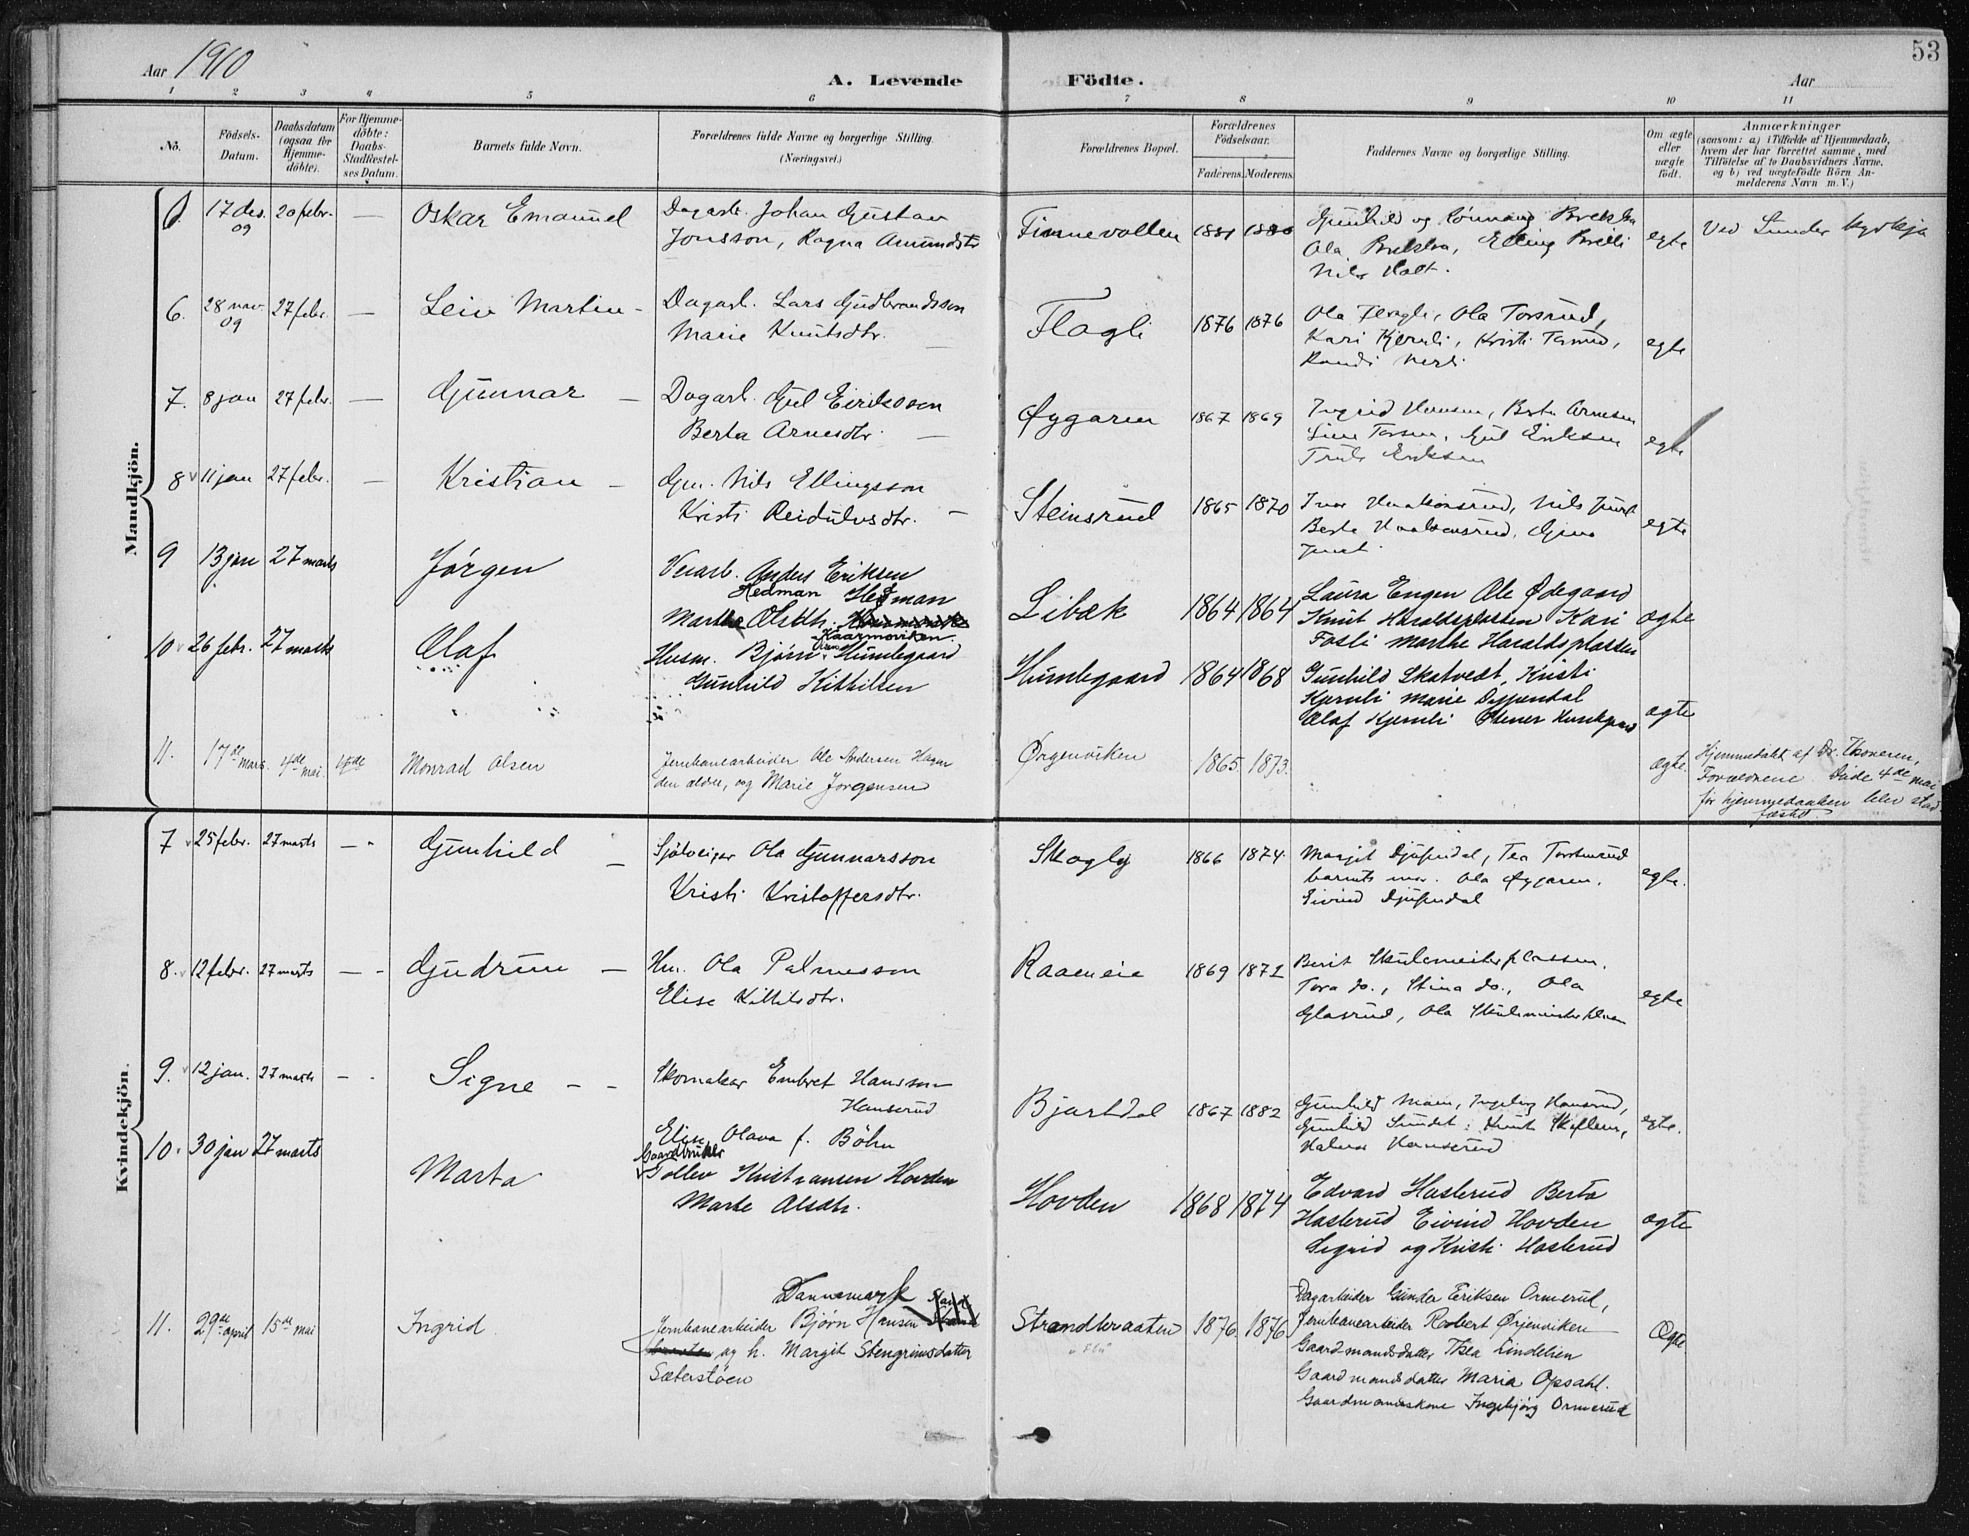 53
Aar 1910
A. Levende Födte.
Aar
1 2 3 4 5 6 7 8 9 10 11
No.
Födsels-Datum.
Daabsdatum (ogsaa for Hjemme-döbte).
For Hjemme-döbte: Daabs-Stadfæstel-ses Datum.
Barnets fulde Navn.
Forældrenes fulde Navne og borgerlige Stilling.
(Næringsvei.)
Forældrenes Bopæl.
Forældrenes Födselsaar.
Faderens. Moderens.
Faddernes Navne og borgerlige Stilling.
Om ægte eller uægte födt.
Anmærkninger
(saasom: a) i Tilfælde af Hjemmedaab,
hvem der har forrettet samme, med
Tilföielse af to Daabsvidners Navne,
og b) ved uægtefödte Börn An-
melderens Navn m. V.)
Mandkjön.
17 des. 09 20 febr. — Oskar Emanuel
Dagarb. Johan Gustav
Jonsson, Ragna Amundsdtr
Finnevollen
Gunhild og
Ola
Nils Holt.
egte
Ved Lunder kyrkja
6. 28 nov. 09 27 febr. — Leiv Martin -
Dagarb. Lars Gudbrandsson
Marie Knutsdtr. —
Flagli 1876 1876
Ola Flagli, Ola Torsrud,
Kari Kjernli, Kristi
Randi
egte
7. 8 jan 27 febr. — Gunnar —
Dagarb. Gul Eiriksson
Berta Arnesdtr. —
Øygaren 1867 1869
Ingrid Hansen, Berta Arnesen
Gul Eriksen
Truls Eriksen
egte
8 11 jan 27 febr. — Kristian —
Gm. Nils Ellingsson
Kristi Reidulvsdtr. —
Steinsrud 1865 1870
Ivar Haakonsrud, Nils
Berta Haakonsrud,
egte
9 13 jan 27 marts Jørgen
Anders Eriksen
Hedman Hedman
Marthe Olsdtr.
Kaarmoviken
Libæk 1864 1864
Laura Engen Ole Ødegaard
Knut Haraldsplassen Kari
Fosli Marthe Haraldsplassen
ægte
10 26 febr. 27 marts Olaf
Husm. Bjørn Humlegaard
Gunhild Kittilsen
Humlegaard 1864 1868
Gunhild Skatvedt, Kristi
Kjernli Marie Djupendal
Olaf Kjernli Stener Humlegaard
ægte
11. 17de mars. 4de mai. 4de Monrad Olsen
Jernbanearbeider Ole Andersen Hagen
den ældre, og Marie Jørgensen
Ørgenviken 1865. 1873.
ægte.
Hjemmedøbt af Dr. Thoresen,
Forældrene. Døde 4de mai
før hjemmedaaben blev stad-
fæstet.
Kvindekjön.
7 25 febr. 27 marts — - Gunhild —
Sjølveigar Ola Gunnarsson
Kristi Kristoffersdtr.
Skogly 1866 1874.
Margit Djupedal, Tea Torsrud
barnets mor. Ola Øygaren,
Eivind Djupedal
egte.
8. 12 febr. 27 marts — - Gudrun —
Hm. Ola Palmesson
Elise Kittilsdtr.
Raaen eie 1869 1872
Berit Skulemeisterplassen.
Tora do., Stina do., Ola
Glasrud, Ola Skulemeisterplassen
egte
9. 12 jan. 27 marts — - Signe — -
Skomakar Embret Hansson
Hanserud
Elise Olava f. Bøhn
Bjartdal 1867 1882
Gunhild Moen, Ingeborg Hanserud,
Gunhild Sundet, Knut
Halvor Hanserud
egte.
10. 30 jan 27 marts Marta
Gaardbruker
Tollev Kristiansen Hovden
Marte Olsdtr.
Hovden 1868 1874
Edvard Haslerud Berta
Haslerud Eivind Hovden
Sigrid og Kristi Haslerud
ægte
11. 29de april 15de mai Ingrid.
Dannemark
Jernbanearbeider Bjørn Hansen
og h. Margit Stengrimsdatter
Sæterstøen
Strandbraaten 1876. 1876
"Flå"
Dagarbeider Gunder Eriksen Ormerud,
Jernbanearbeider Robert Ørjenviken
Gaardmandsdatter Thea Lindelien
Gaardmandsdatter Maria Opsahl.
Gaardmandskone Ingebjørg Ormerud
Ægte